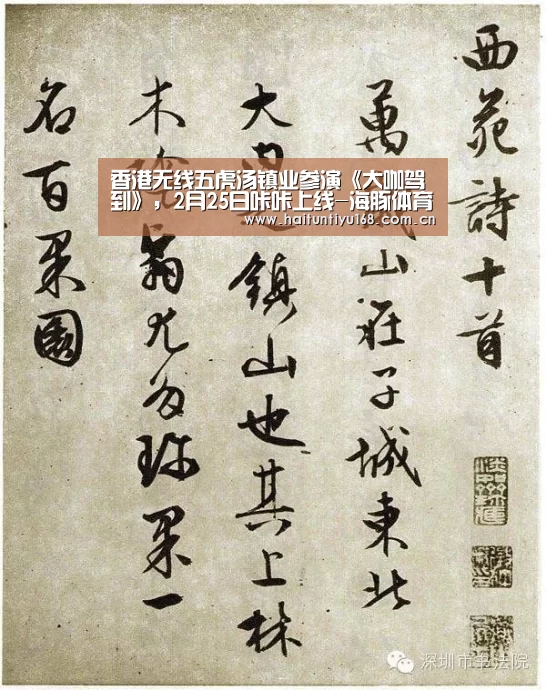 西苑詩十首
萬山在子城東北
大鎮山也其上林
木翳尤多珍果一
名百果園
香港无线五虎汤镇业参演《大咖驾
到》，2月25日咔咔上线-海豚体育
www.haituntiyu168.com.cn
深圳市书法院